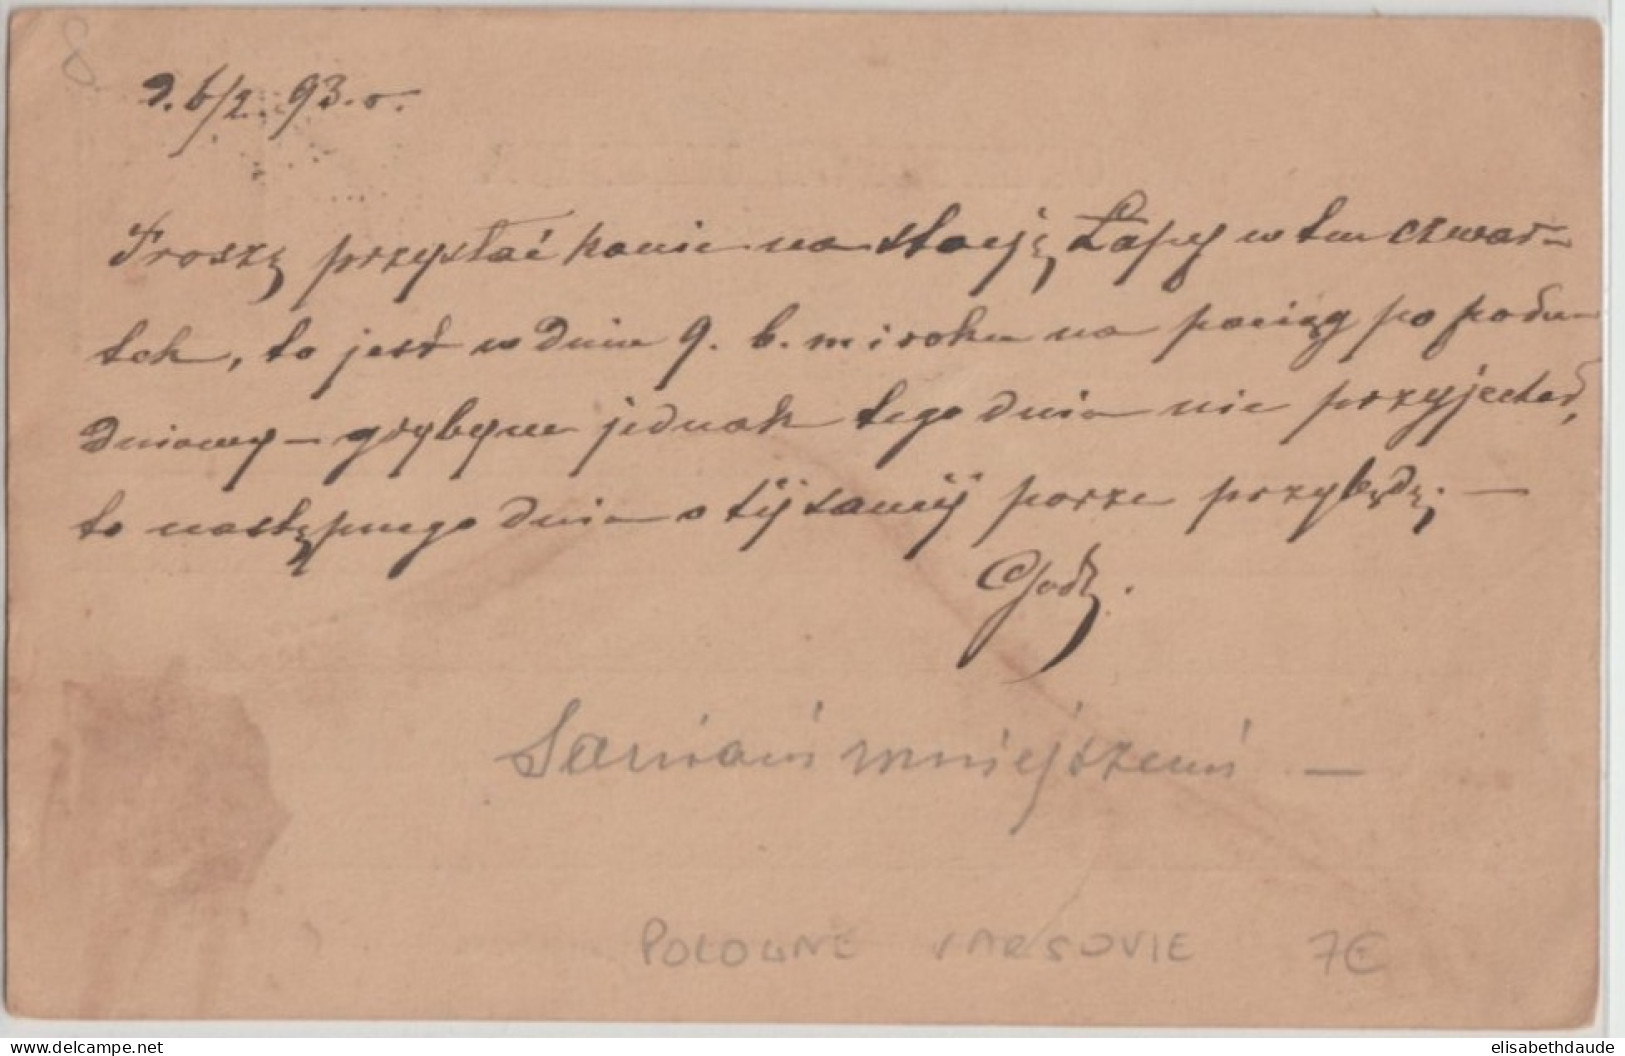 8
D. 6/2. 93. r.
Proszę przysłać konie na stacyję Łapy w ten czwar-
tek, to jest w dniu 9. b. m i roku na pociąg po połu-
dniowy — gdybym jednak tego dnia nie przyjechał,
to następnego dnia o tÿ samÿ porze przybędę. —
Sarniaw mniejszemi —
POLOGNE VARSOVIE 7€
www.delcampe.net
elisabethdaude